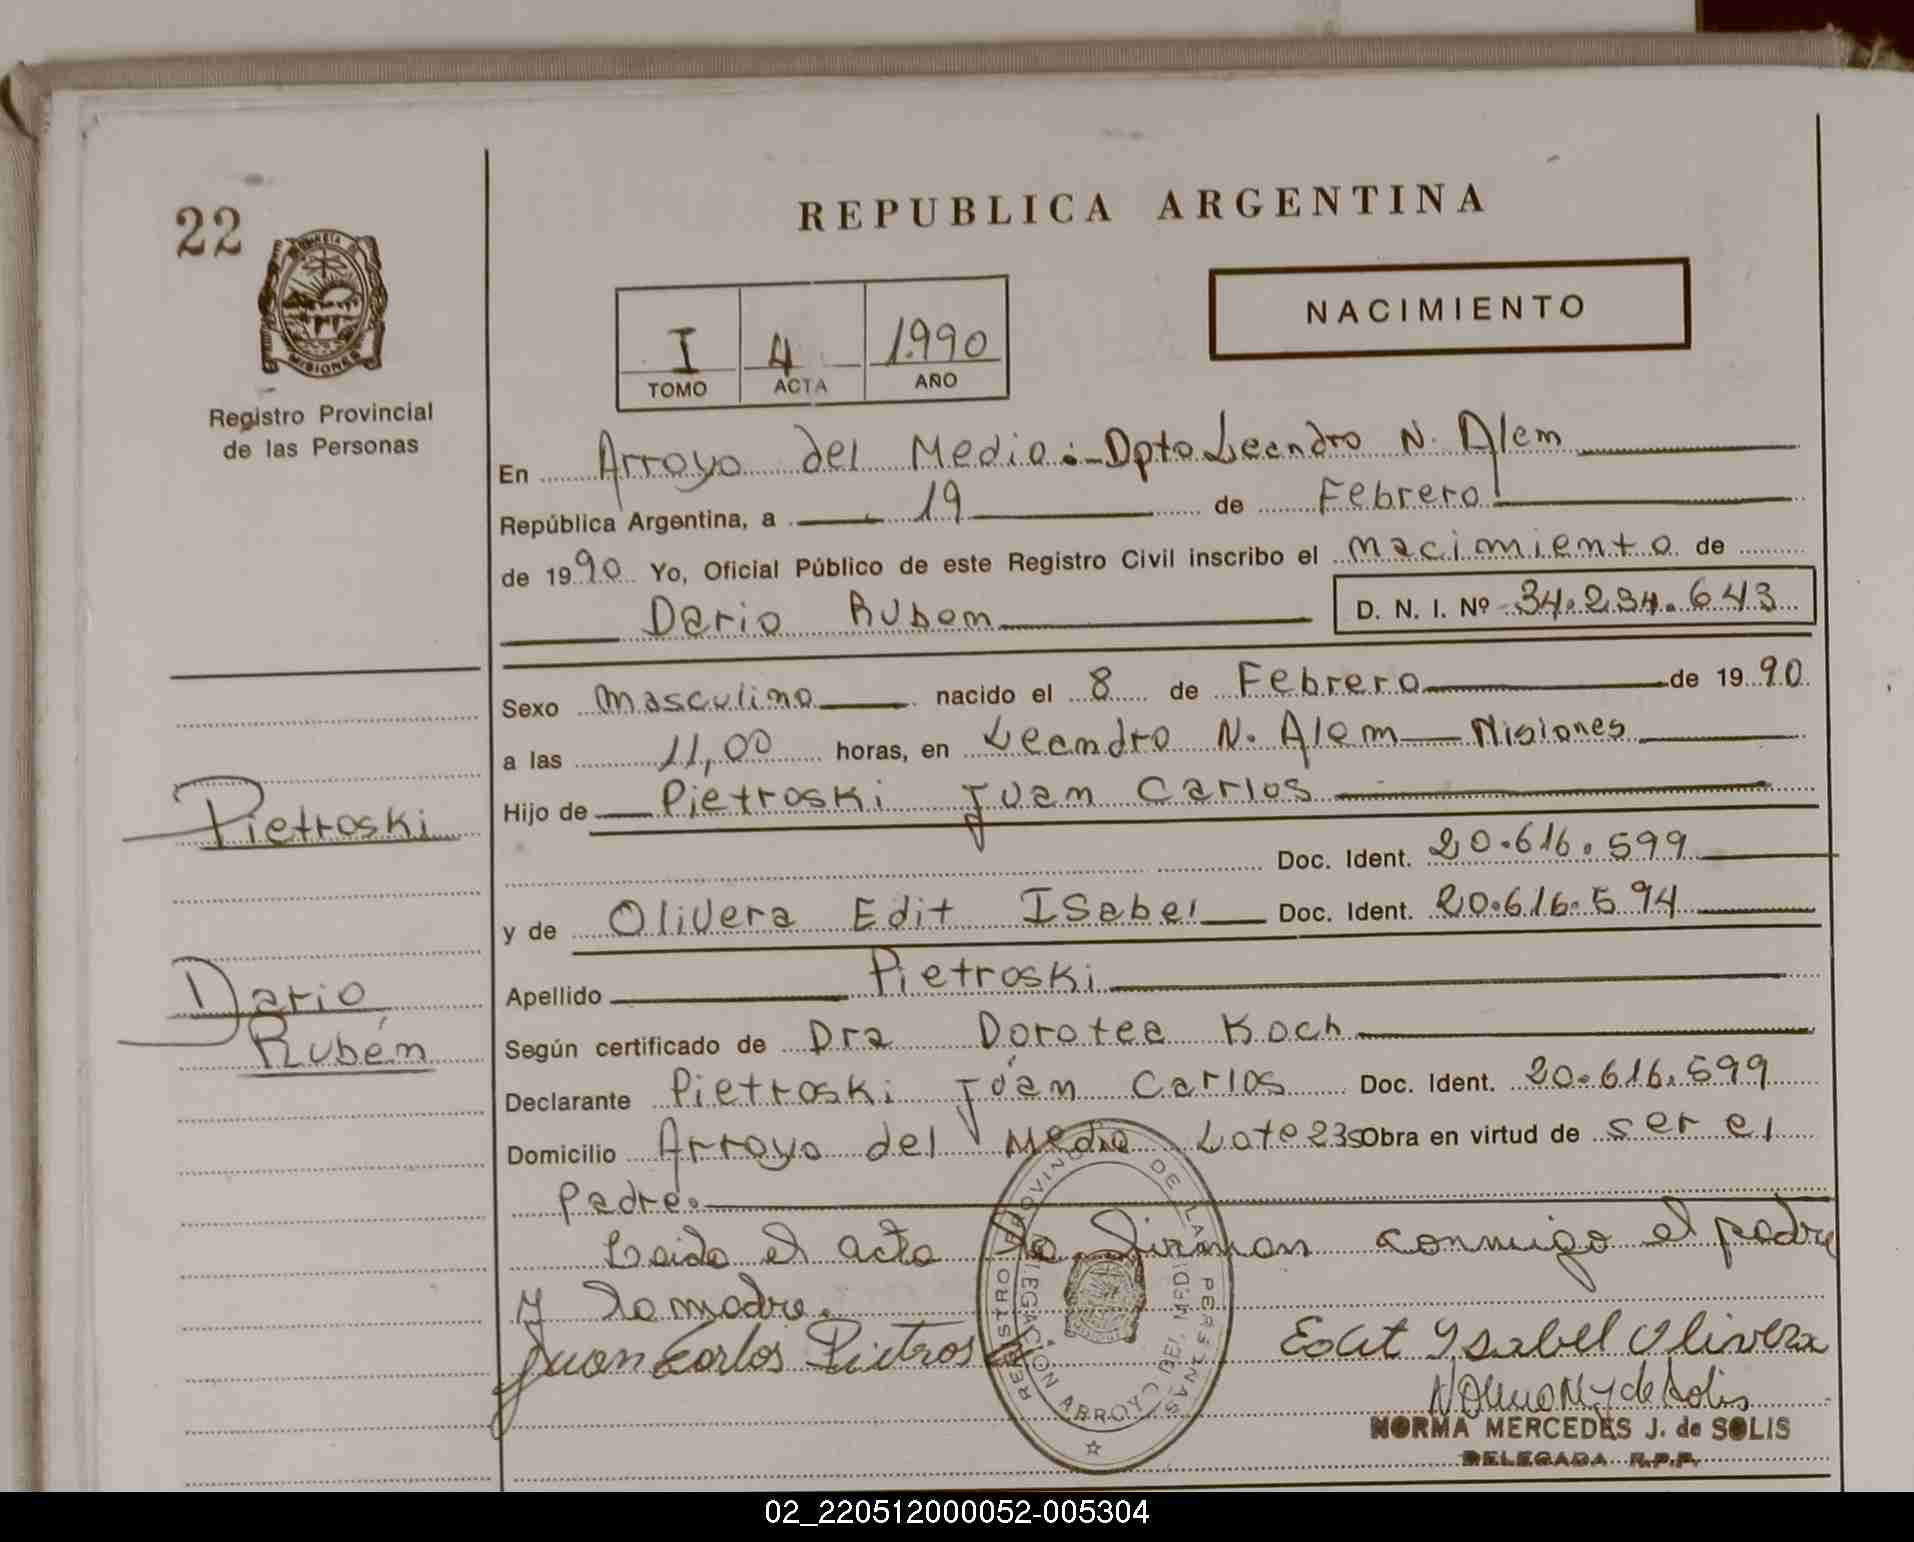 22
REPUBLICA ARGENTINA
NACIMIENTO
I 4 1.990
TOMO ACTA AÑO
MISIONES
Registro Provincial
de las Personas
En Arroyo del Medio.- Dpto Leandro N. Alem
República Argentina, a 19 de Febrero
de 1990 Yo, Oficial Público de este Registro Civil inscribo el nacimiento de
Dario Ruben D. N. I. Nº 34.234.643
Sexo masculino nacido el 8 de Febrero de 1990
a las 11,00 horas, en Leandro N. Alem Misiones
Hijo de Pietroski Juan Carlos
Pietroski
Doc. Ident. 20.616.599
y de Olivera Edit Isabel Doc. Ident. 20.616.594
Apellido Pietroski
Dario
Rubén
Según certificado de Dra Dorotea Koch
Declarante Pietroski Juan Carlos Doc. Ident. 20.616.599
Domicilio Arroyo del Medio Lote 235 Obra en virtud de ser el
padre.
Leida el acta la firman conmigo el padre
y la madre.
Juan Carlos Pietroski
Edit Ysabel Olivera
NORMA MERCEDES J. de SOLIS
DELEGADA R.P.P.
REGISTRO PROVINCIAL DE LAS PERSONAS
DELEGACIÓN ARROYO DEL MEDIO
02_220512000052-005304